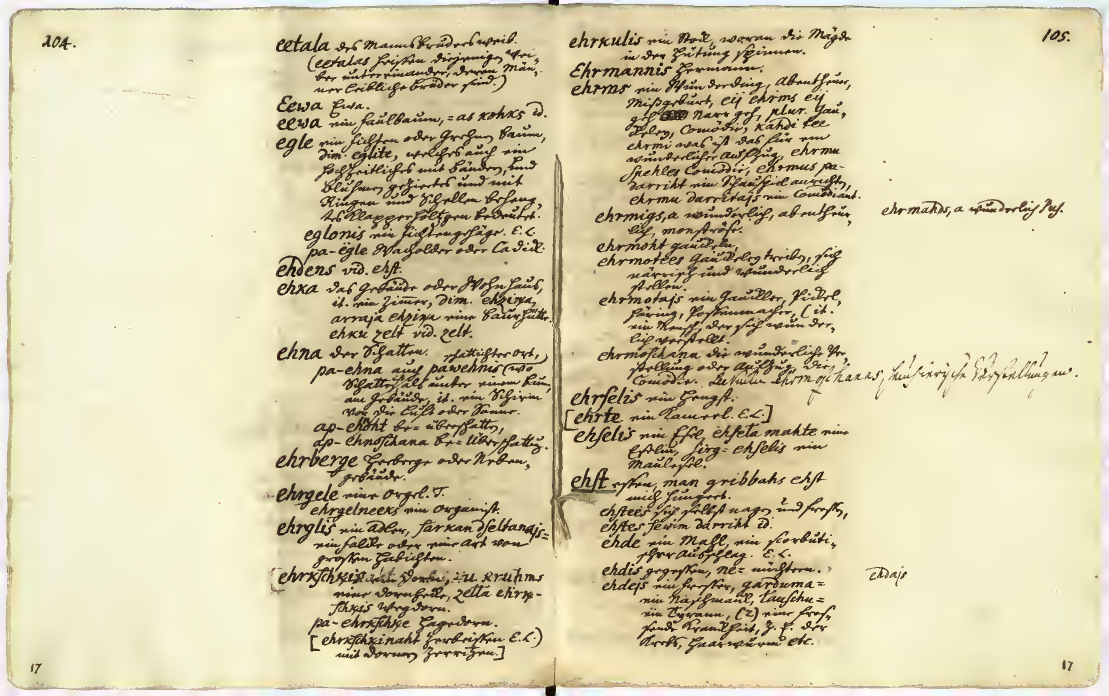 204.
eetala des Manns bruders weib.
(eetalas heissen diejenigen Wei-
ber unter einander, deren Män-
ner leibliche brüder sind.)
Eewa Ewa.
eewa ein faulbaum, = as kohks id.
egle ein fichten oder Grehnen baum,
dim. eglite, welches auch ein
hochzeitliches mit bändern und
bluhmen geziertes und mit
Ringen und Schellen behang-
tes Klapperhöltzgen bedeutet.
eglonis ein fichtengehäge. E.L.
pa-egle Wacholder oder Cadik.
ehdens vid. ehst.
ehka das Gebäude oder Wohnhaus,
it. ein Zimmer, dim. ehziņa,
arraja ehziņa eine baurhütte.
ehku zelt vid. zelt.
ehna der Schatten. schattichter ort,
pa-ehna auch pawehnis (wo
Schatten als unter einem baum,
am Gebäude, it. ein Schirm
vor die Luft oder Sonne.
ap-ehnoht be= überschatten,
ap-ehnoschana be= überschattung.
ehrberge herberge oder Neben-
gebäude.
ehrgele eine orgel. T.
ehrgelneeks ein organist.
ehrglis ein adler, sarkan dseltanajs=
ein falke oder eine art von
grossen habichten.
[ehrkschkis ein Dorn, =u kruhms
eine dornhecke, zella ehrk-
schkis wegdorn.
pa-ehrkschke hagedorn.
[ehrkschkinaht herbeissen E.L.)
mit dornen zerritzen.]
17
105.
ehrkulis ein Stock, woran die Mägde
in der hütung spinnen.
Ehrmannis hermann.
ehrms ein Wunderding, Abentheuer,
Missgeburt, eij ehrms eij
geh Narr geh, plur. Gau-
keley, Comödie, kahdi tee
ehrmi was ist das für ein
wunderlicher Aufzug, ehrmu
spehles Comödie, ehrmus pa-
darriht ein Schauspiel anrichten,
ehrmu darritajs ein Comödiant.
ehrmigs, a wunderlich, abentheur-
lich, monströse.
ehrmahds, a wunderlich
ehrmoht gaukeln.
ehrmotees Gaukeley treiben, sich
närrisch und wunderlich
stellen.
ehrmotajs ein Gauckler, Pickel-
häring, Possenmacher, (it.
ein Mensch, der sich wunder-
lich verstellt.
ehrmoschana die wunderliche Ver-
stellung oder Aufzug, die
Comödie. ehrmoschanas, Vorstellungen.
ehrselis ein hengst.
[ehrte ein Kamerl. E.L.]
ehselis ein Esel, ehsela mahte eine
Eselin, sirg= ehselis ein
Maulesel.
ehst essen, man gribbahs ehst
mich hungert.
ehstees sich selbst nagen und fressen,
ehstes sewim darriht id.
ehde ein Mahl, ein scorbuti-
scher Ausschlag. E.L.
ehdis gegessen, ne= nüchtern.
ehdajs
ehdejs ein fresser, garduma=
ein Naschmaul, lauschu=
ein Tyrann, (2) eine fres-
sende Krankheit, z. E. der
Krebs, haarwurm etc.
17